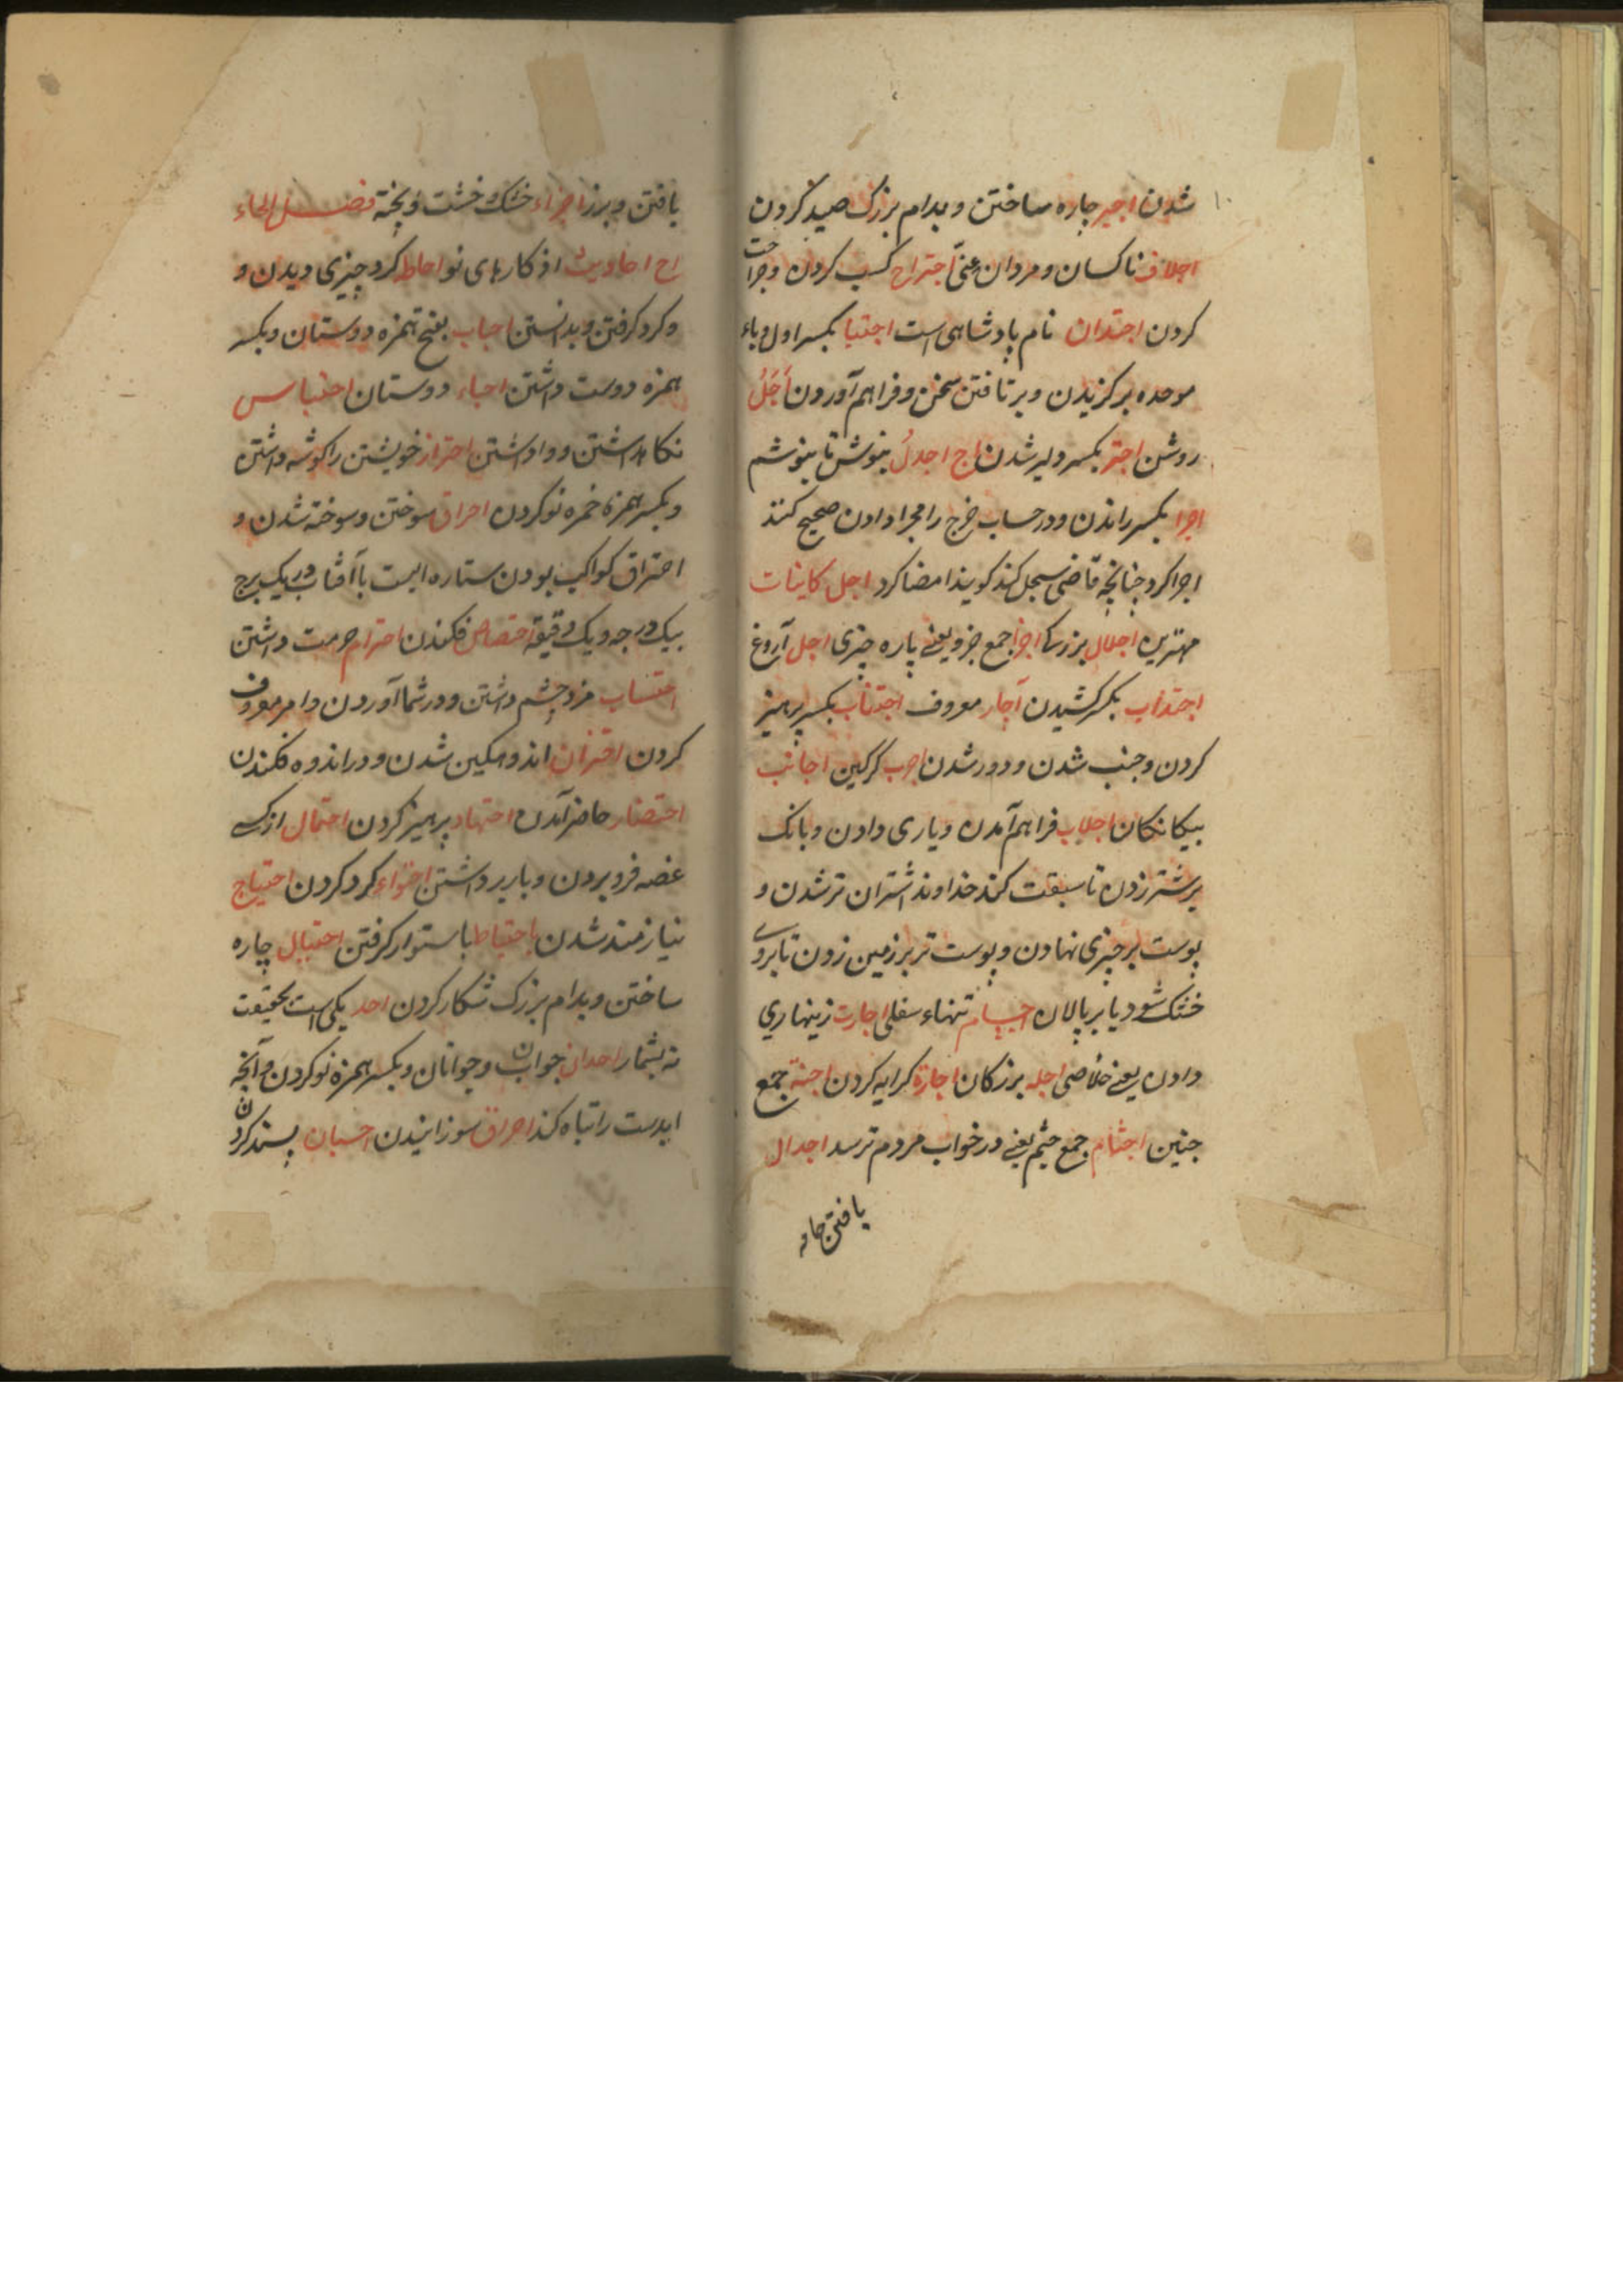 شدن اجیر چاره ساختن و بدام بزرک صید کردن
اجلاف ناکسان و مردان غنی اجتراح کسب کردن و جراحت
کردن اجتدان نام پادشاهی است اجتبا بکسر اول و باء
موحده برکزیدن و برتافتن سخن و فراهم آوردن اَجَلُ
روشن اجتر بکسر دلیر شدن اج اجدلُ بنوش تا بنوشم
اجرا بکسر راندن و در حساب خرج را مجرا دادن صحیح کنند
اجرا کرد چنانچه قاضی سجل کند کویند امضا کرد اجل کاینات
مهترین اجلال بزرک اجزا جمع جزو یعنی پاره چیزی اجل آروغ
اجتذاب بکسر کشیدن آجار معروف اجتناب بکسر پرهیز
کردن و جنب شدن و دور شدن اجرب کرکین اجانب
بیکانکان اجلاب فراهم آمدن و یاری دادن و بانک
بر شتر زدن تا سبقت کند خداوند اشتران تر شدن و
پوست بر چیزی نهادن و پوست تر بر زمین زدن تا بروی
خشک شود یا بر پالان اجسام تنهاء سفلی اجارت زینهاری
دادن یعنی خلاصی اجله بزرکان اجازة کرایه کردن اجنة جمع
جنین اجثام جمع جثم یعنی در خواب مردم ترسد اجدال
یافتن جامه
یافتن و برز اجزاء خشک و خشت و پخته فصل الحاء
اح احادیث از کارهای نو احاط کرد چیزی دیدن و
و کرد کرفتن و بدانستن احباب بفتح همزه دوستان و بکسر
همزه دوست داشتن احباء دوستان احتباس
نکاهداشتن و واداشتن احتراز خویشتن را کوشه داشتن
و بکسر همزة خمره نو کردن احراق سوختن و سوخته شدن و
احتراق کواکب بودن ستاره ایست با آفتاب در یک برج
بیک درجه و یک دقیقه احتصاص فکندن احترام حرمت داشتن
احتساب مزد چشم داشتن و در شمار آوردن و امر معروف
کردن احتزان اندوهکین شدن و در اندوه فکندن
احتضار حاضر آمدن احتهاد پرهیز کردن احتمال از کسے
غصه فرو بردن و بار برداشتن احتواء کرد کردن احتیاج
نیازمند شدن باحتیاط باستوار کرفتن احتیال چاره
ساختن و بدام بزرک شکار کردن احد یکی است بحقیقت
نه بشمار احدان جوان و جوانان و بکسر همزه نو کردن و آنچه
ابدست را تباه کند احراق سوزانیدن احسان پسند کردن